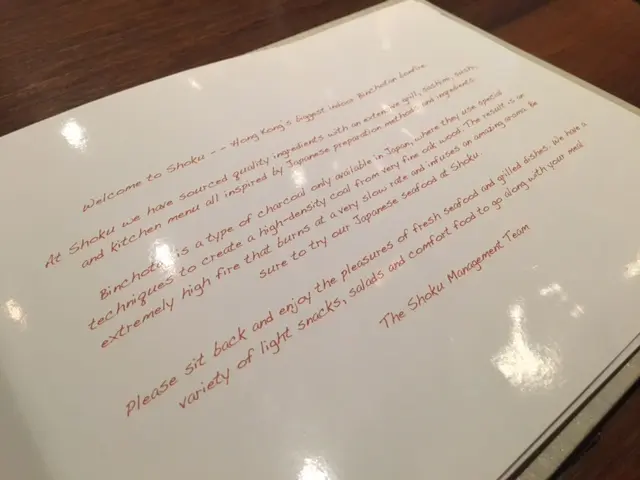 Welcome to Shoku -- Hong Kong's biggest indoor Binchotan bonfire
At Shoku we have sourced quality ingredients with an extensive grill, sashimi, sushi,
and kitchen menu all inspired by Japanese preparation methods and ingredients.
Binchotan is a type of charcoal only available in Japan, where they use special
techniques to create a high-density coal from very fine oak wood. The result is an
extremely high fire that burns at a very slow rate and infuses an amazing aroma. Be
sure to try our Japanese seafood at Shoku.
Please sit back and enjoy the pleasures of fresh seafood and grilled dishes. We have a
variety of light snacks, salads and comfort food to go along with your meal.
The Shoku Management Team